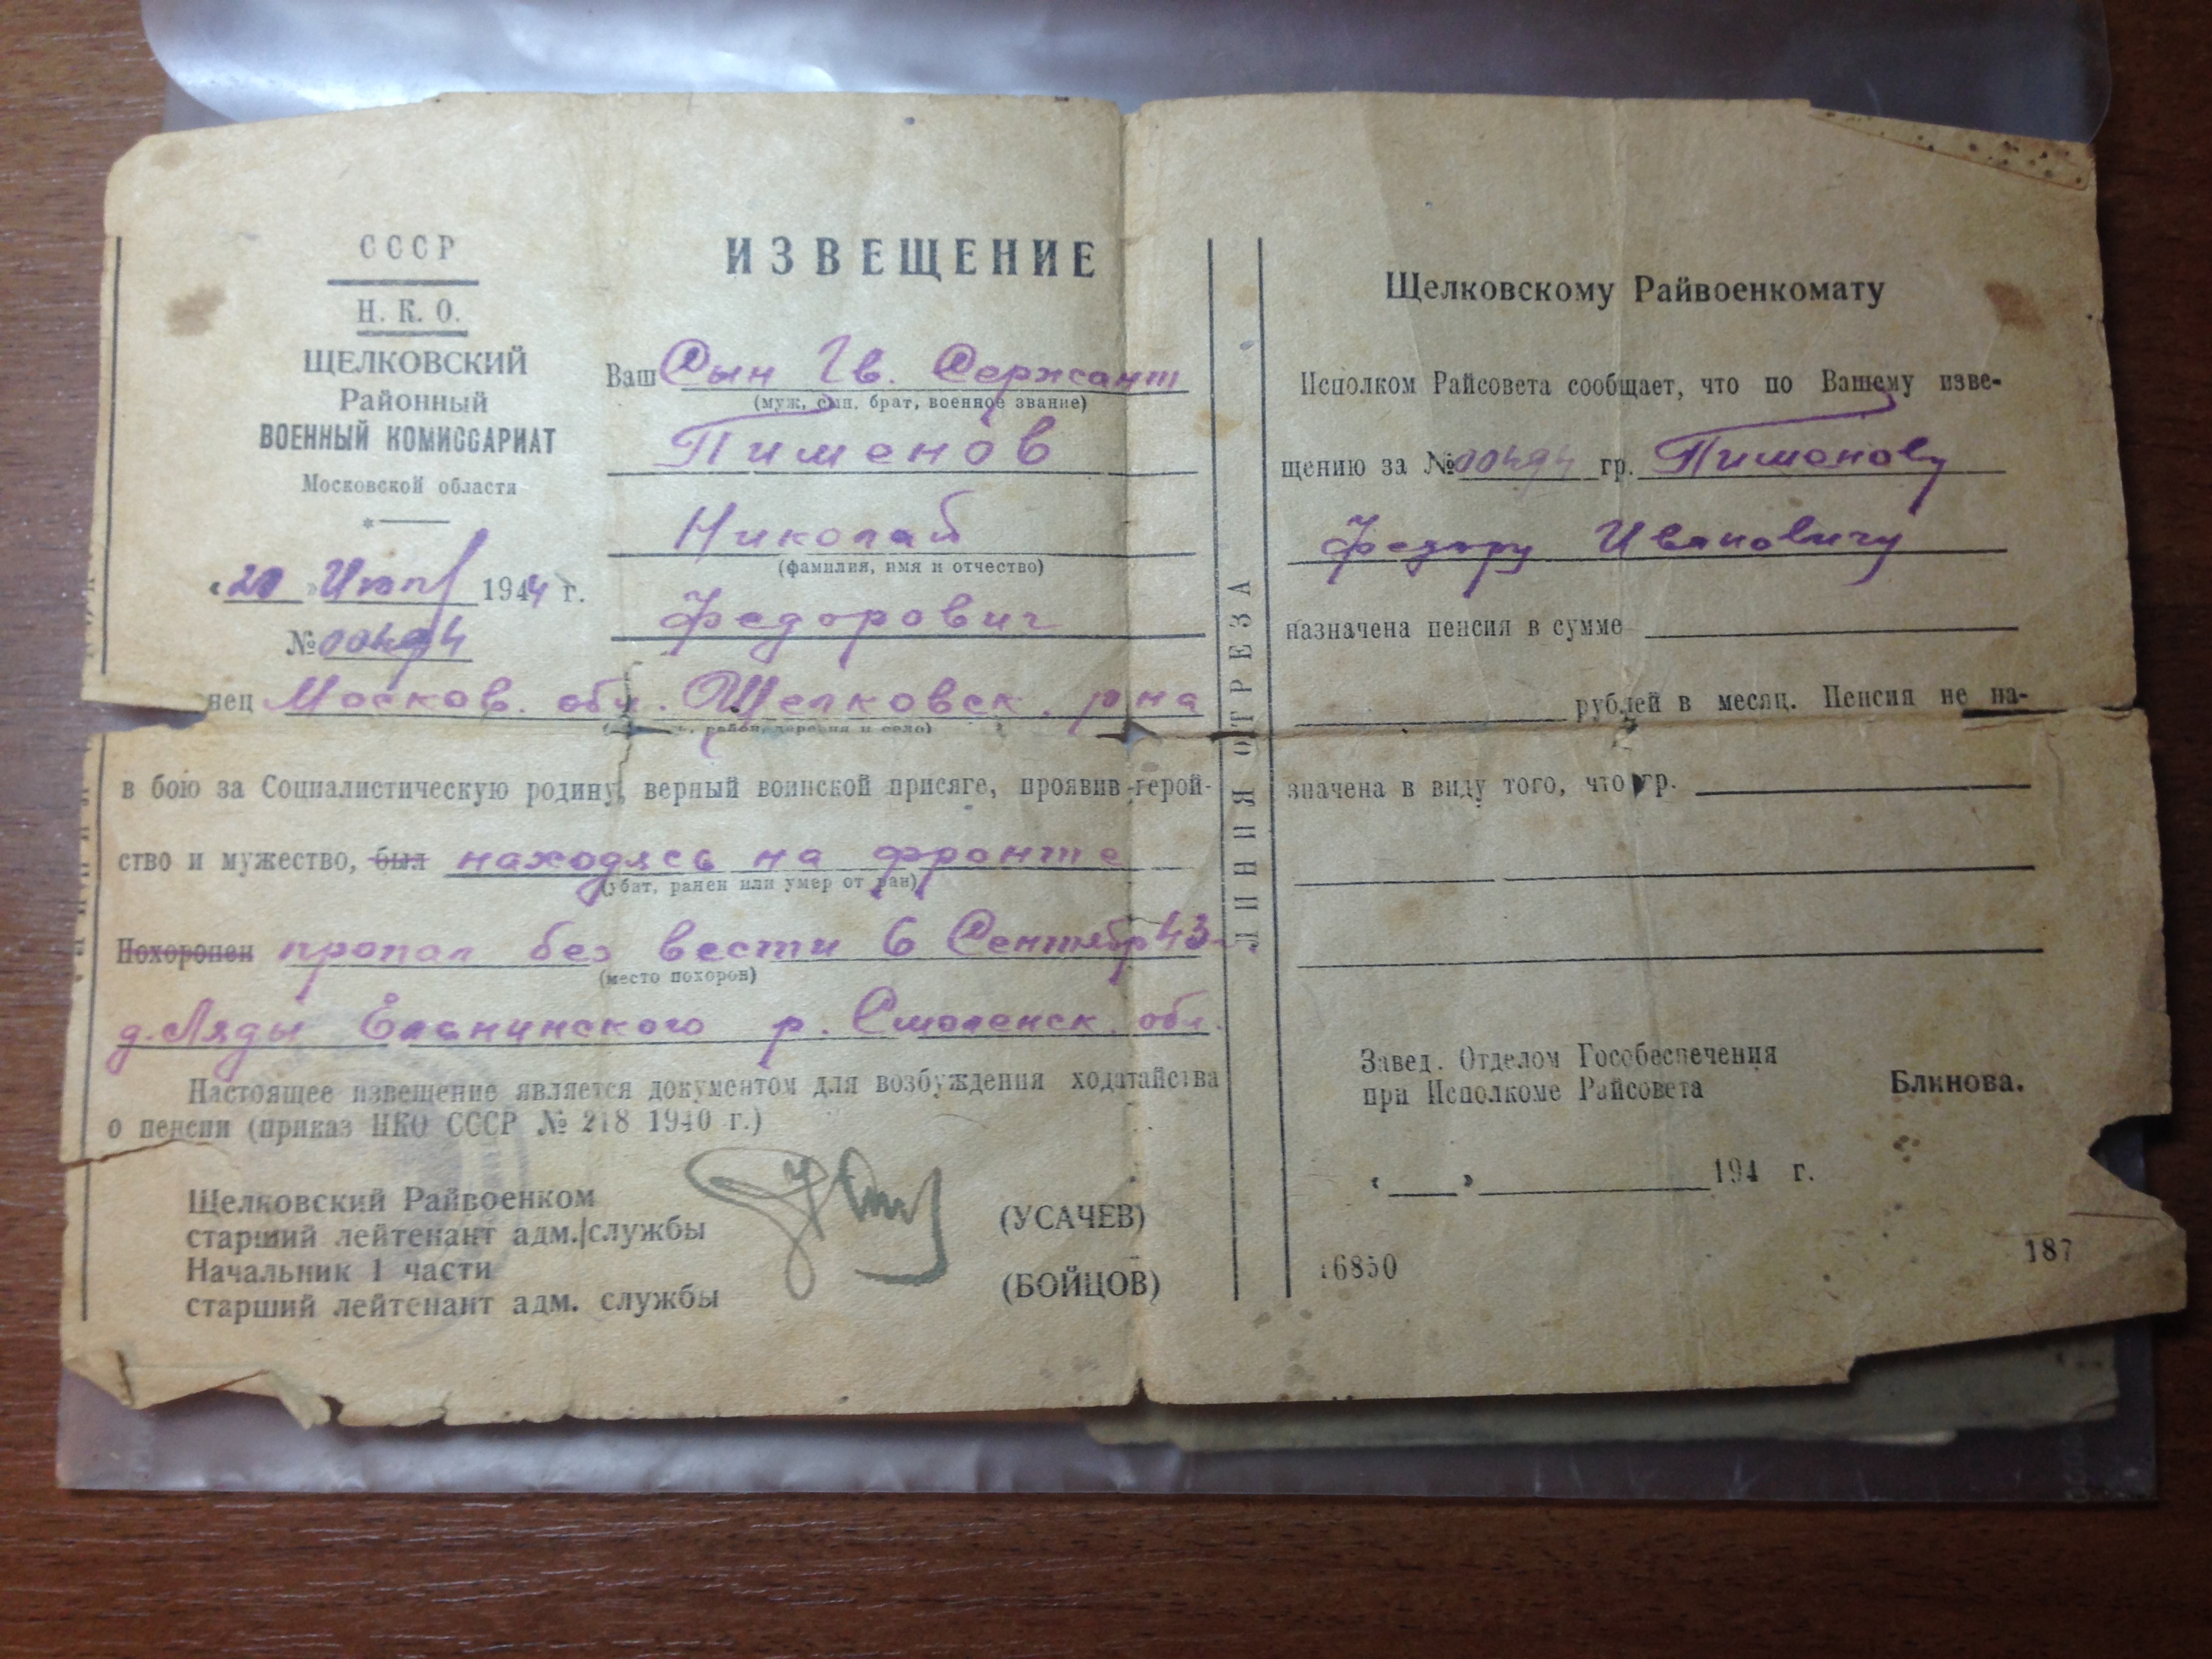 СССР
Н. К. О.
ЩЕЛКОВСКИЙ
Районный
ВОЕННЫЙ КОМИССАРИАТ
Московской области
«20» 1944 г.
№
ИЗВЕЩЕНИЕ
Ваш Сын Гв. Сержант
(муж, сын, брат, военное звание)
Пименов
Николай
(фамилия, имя и отчество)
Федорович
нец Москов. обл. Щелковск. р на
район, деревня и село)
в бою за Социалистическую родину, верный воинской присяге, проявив герой-
ство и мужество, был находясь на фронте
(убит, ранен или умер от ран)
Похоронен пропал без вести 6 Сентябр 43
(место похорон)
д. Ляды Ельнинского р. Смоленск. обл.
Настоящее извещение является документом для возбуждения ходатайства
о пенсии (приказ НКО СССР № 218 1940 г.)
Щелковский Райвоенком
старший лейтенант адм. службы (УСАЧЕВ)
Начальник 1 части
старший лейтенант адм. службы (БОЙЦОВ)
ЛИНИЯ ОТРЕЗА
Щелковскому Райвоенкомату
Исполком Райсовета сообщает, что по Вашему изве-
щению за № гр. Пименову
Федору Ивановичу
назначена пенсия в сумме
рублей в месяц. Пенсия не на-
значена в виду того, что гр.
Завед. Отделом Гособеспечения
при Исполкоме Райсовета Блинова.
« » 194 г.
16850 187